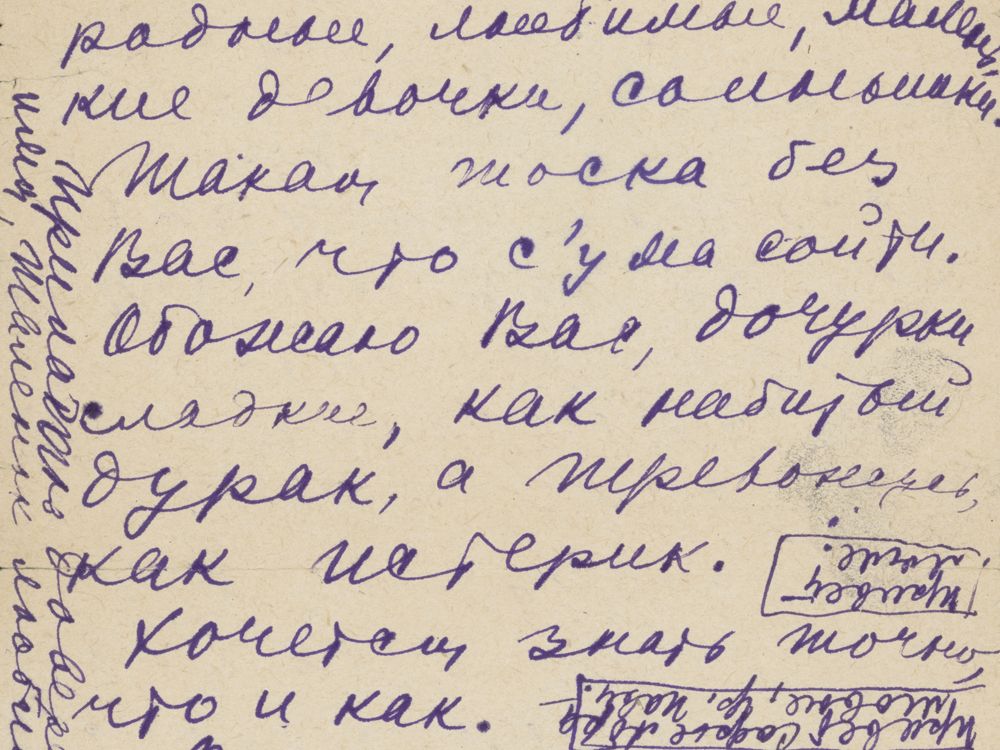 родные, любимые, малень-
кие девочки, солнышки.
Такая тоска без
Вас, что с'ума сойти.
Обожаю Вас, дочурки
сладкие, как набитый
дурак, а тревожусь,
как истерик.
Хочется знать точно,
что и как.
Привет
Люле.
Привет Софье